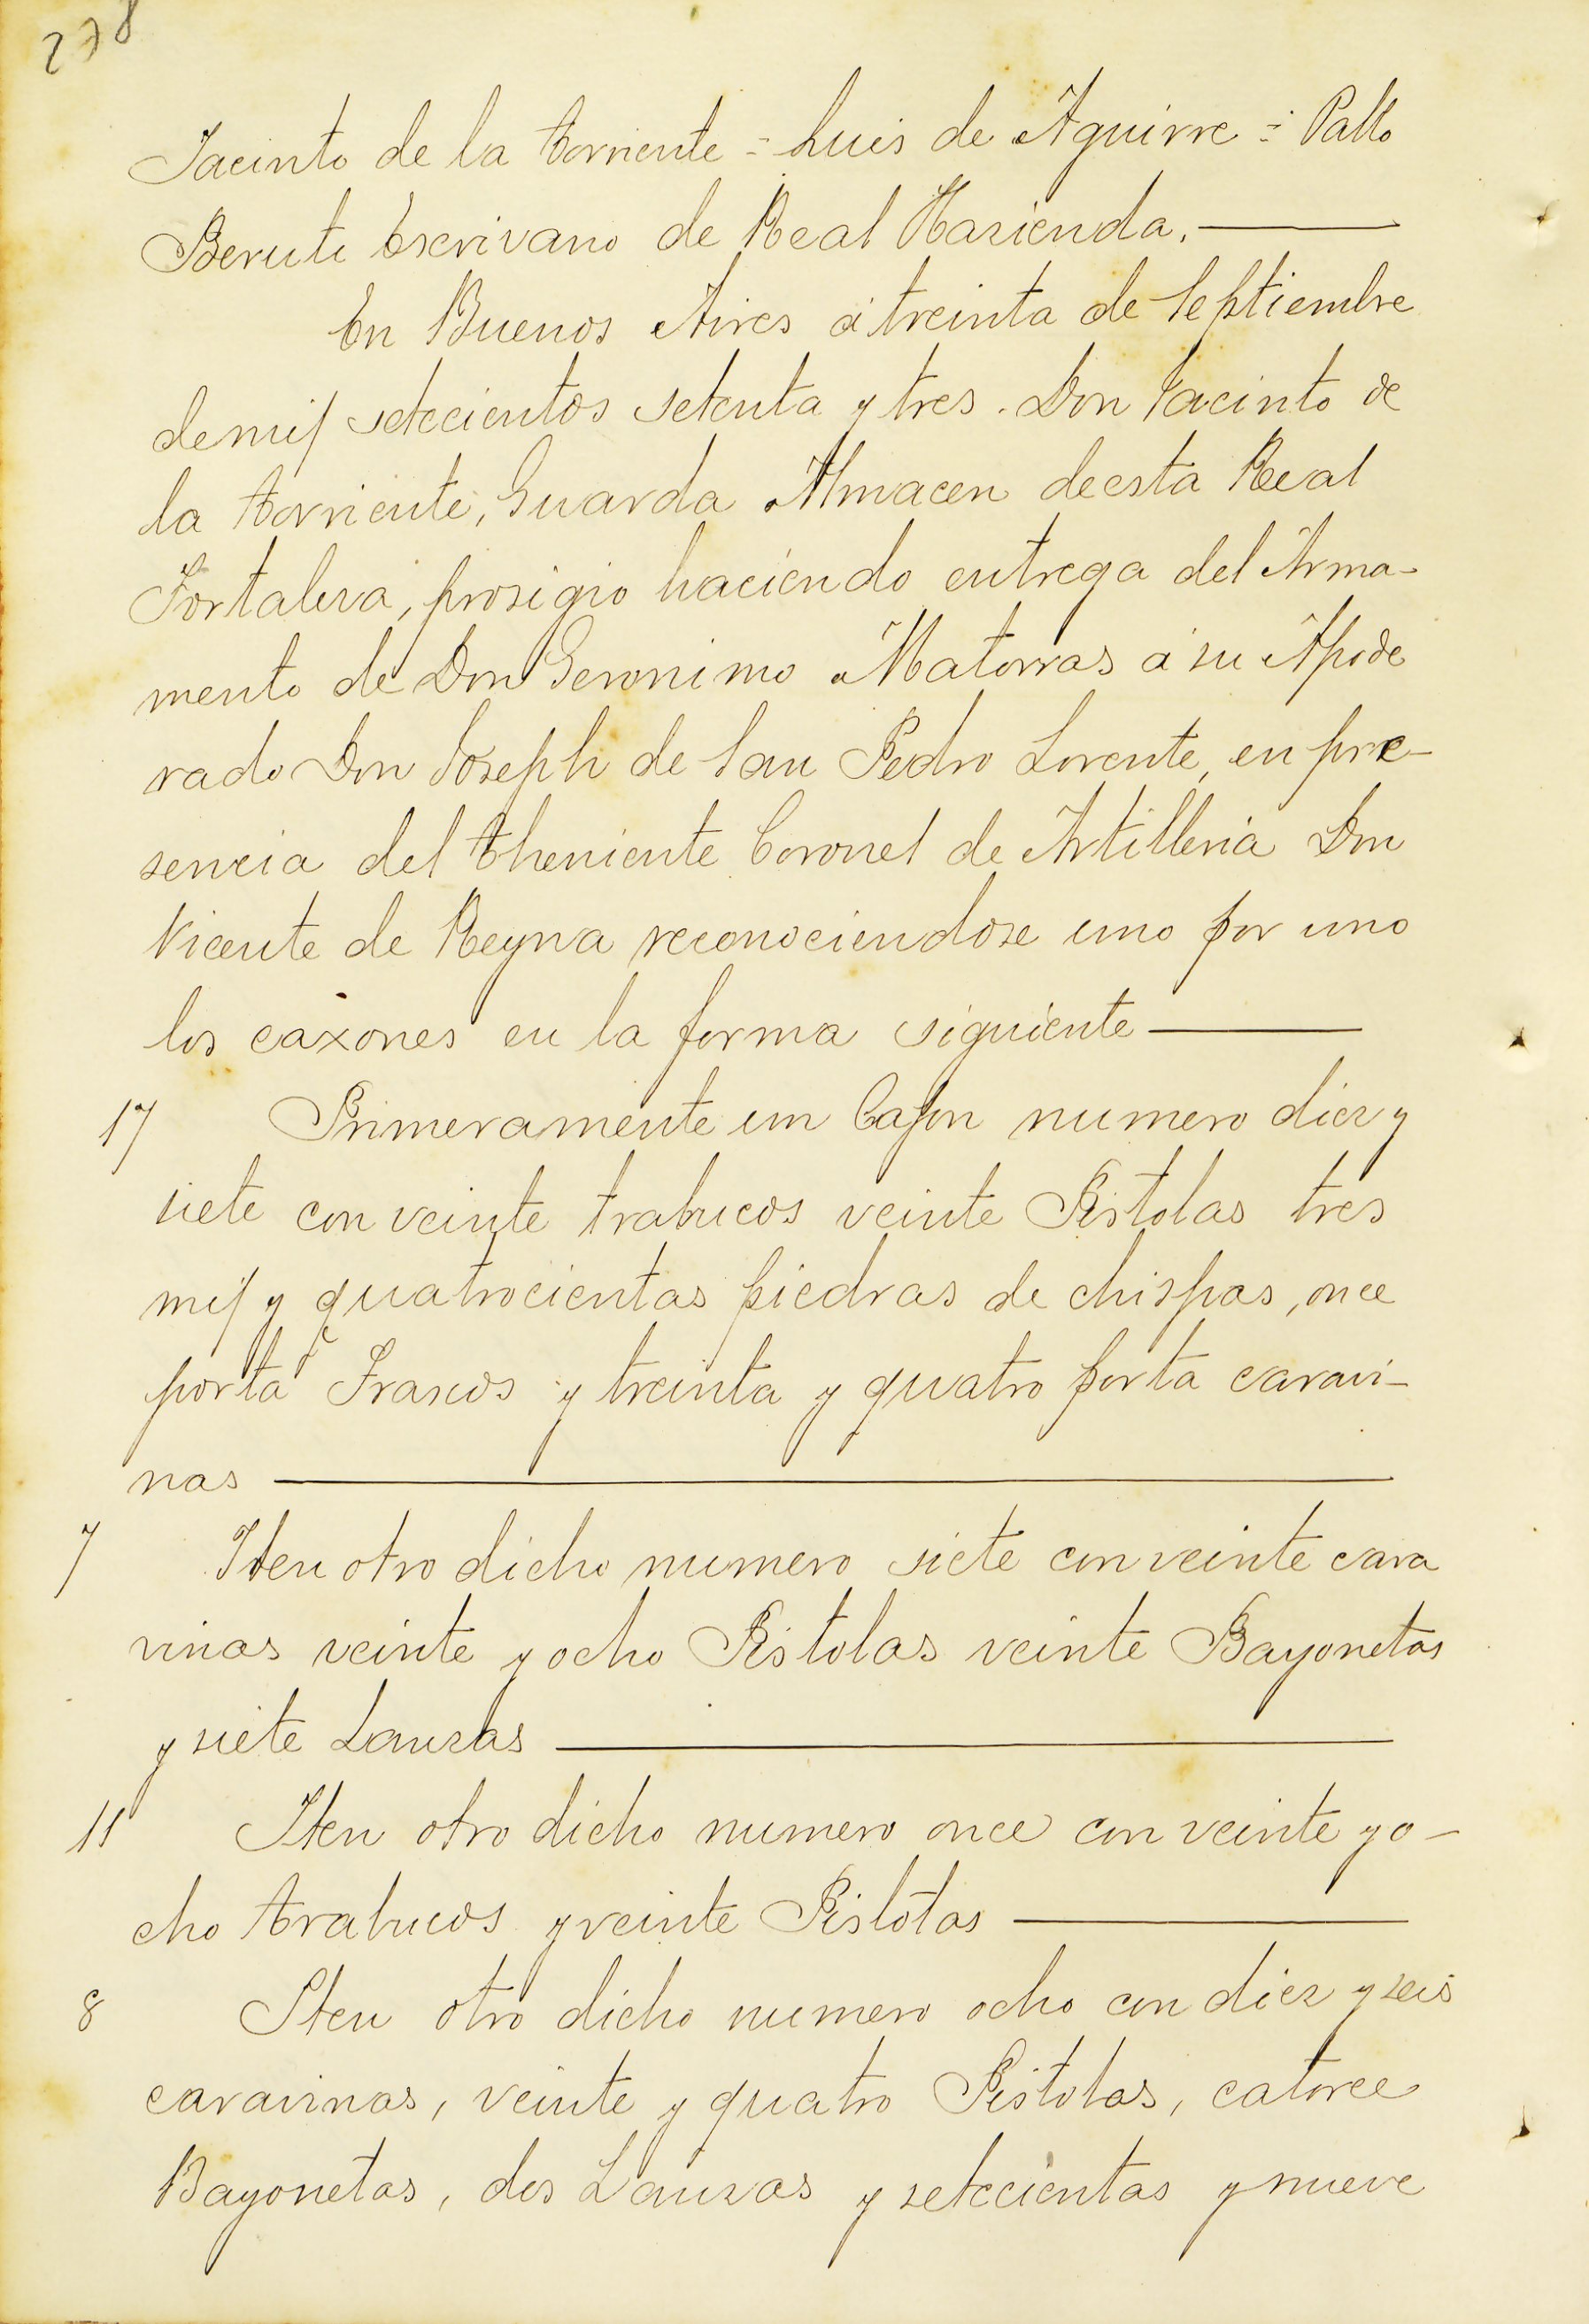 278
Jacinto de la Torriente = Luis de Aguirre = Pablo
Beruti Escrivano de Real Hasienda.
En Buenos Aires á treinta de Septiembre
de mil setecientos setenta y tres. Don Jacinto de
la Torriente, Guarda Almacen de esta Real
Fortaleza, prosigio haciendo entrega del Arma-
mento de Don Geronimo Matorras á su Apode
rado Don Joseph de San Pedro Lorente, en pre-
sencia del Theniente Coronel de Artilleria Don
Vicente de Reyna reconociendose uno por uno
los caxones en la forma siguiente
17 Primeramente un Cajon numero diez y
siete con veinte trabucos veinte Pistolas tres
mil y quatrocientas piedras de chispas, once
porta Frascos y treinta y quatro porta caravi-
nas
7 Iten otro dicho numero siete con veinte cara
vinas veinte y ocho Pistolas veinte Bayonetas
y siete Lanzas
11 Iten otro dicho numero once con veinte y o-
cho Trabucos y veinte Pistolas
8 Iten otro dicho numero ocho con diez y seis
caravinas, veinte y quatro Pistolas, catorce
Bayonetas, dos Lanzas y setecientas y nueve